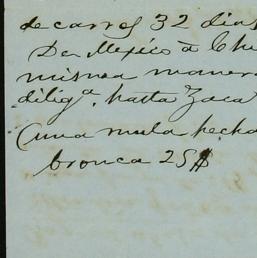 de carros 32 dias
De Mexico à Chi
misma manera
dilig.ª hasta Zaca
(una mula pecha
bronca 25$